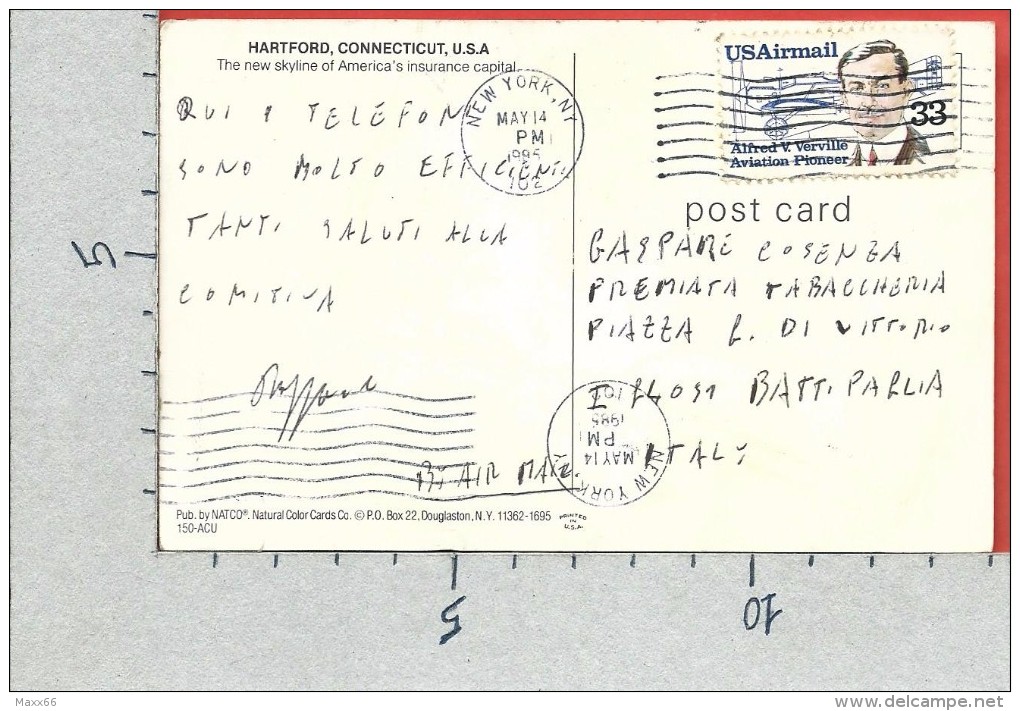 HARTFORD, CONNECTICUT, U.S.A
The new skyline of America's insurance capital.
QUI I TELEFONI
SONO MOLTO EFFICIENTI
TANTI SALUTI ALLA
COMITIVA
BY AIR MAIL
Pub. by NATCO®. Natural Color Cards Co. © P.O. Box 22, Douglaston, N.Y. 11362-1695
150-ACU
PRINTED
IN
U.S.A.
NEW YORK, NY
MAY 14
PM
1985
102
USAirmail
33
Alfred V. Verville
Aviation Pioneer
post card
GASPARE COSENZA
PREMIATA TABACCHERIA
PIAZZA G. DI VITTORIO
I 84091 BATTIPAGLIA
ITALY
NEW YORK
MAY 14
PM
1985
5
5
10
Maxx66
www.delcampe.net